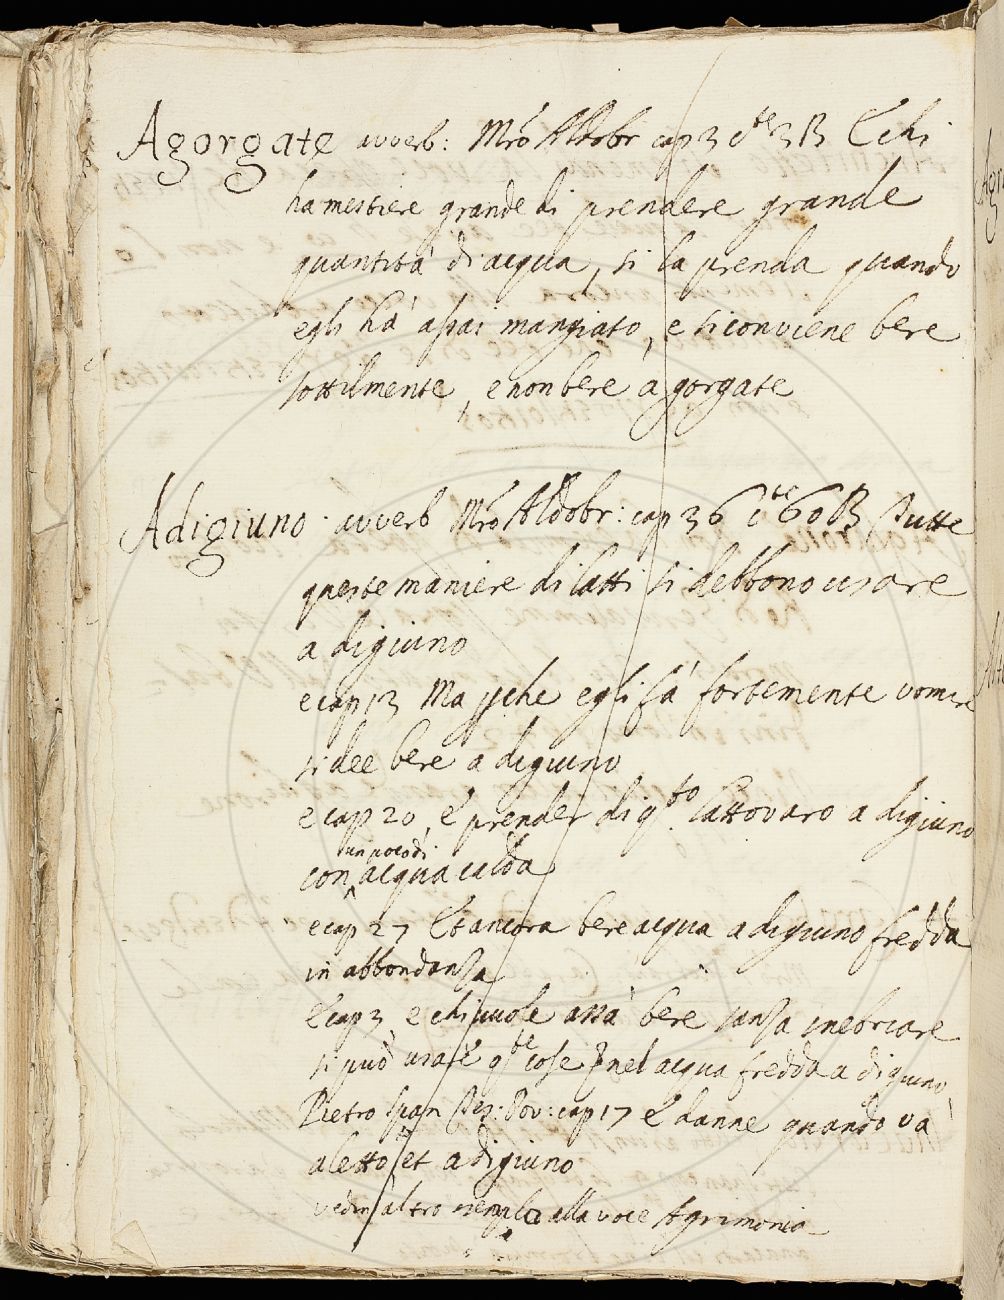 Agorgate avverb: Mro Aldobr cap 3 cte 3B E chi
ha mestiere grande di prendere grande
quantità di acqua, si la prenda quando
egli hà assai mangiato, e si conviene bere
sottilmente, e non bere à gorgate
Adigiuno. avverb Mro Aldobr: cap 36 cte 60B Tutte
queste maniere di latti si debbono usare
a digiuno
e cap 13 Ma pche egli fà fortemente vomire
si dee bere a digiuno
e cap 20, e prender di qto lattovaro a digiuno
con un poco di acqua calda
e cap 27 Et ancora bere acqua a digiuno fredda
in abbondanza
E cap 3 e chi vuole assà bere sanza inebriare
si può usare qte cose nel acqua fredda a digiuno
Pietro Span Tes: Pov: cap 17 e danne quando va
a letto et a digiuno
vedin altro esemplo alla voce Agrimonia